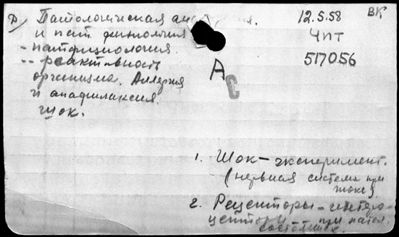 Д) Патологическая ана
и пат. физиология
- патфизиология
-- реактивность
организма. Аллергия
и анафилаксия.
Шок.
12.5.58
ВК
Чпт
517056
А
С
1. Шок - эксперимент.
(нервная система при
шоке)
2. Рецепторы - интеро-
цепторы - при патол.
состояниях.